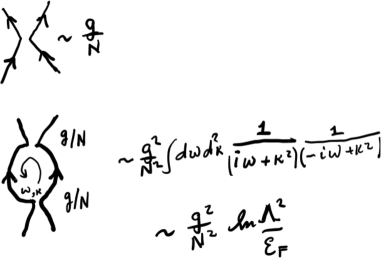 ~ g/N
g/N
ω,κ
g/N
~ g²/N² ∫dωd²κ 1/(iω+κ²) 1/(-iω+κ²)
~ g²/N² ln Λ²/ε_F